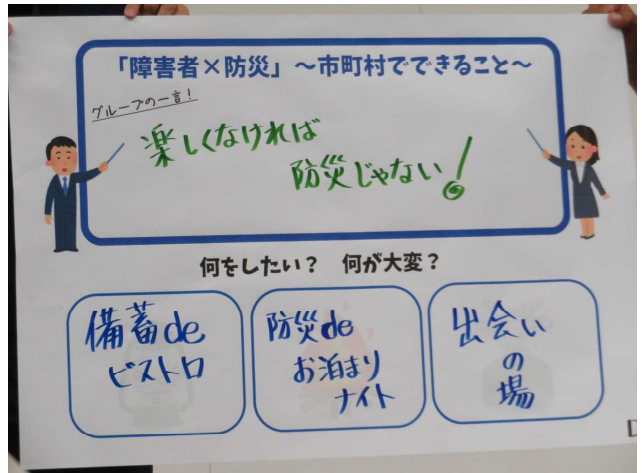 「障害者×防災」～市町村でできること～
グループの一言!
楽しくなければ
防災じゃない!
何をしたい? 何が大変?
備蓄de
ビストロ
防災de
お泊まり
ナイト
出会い
の
場